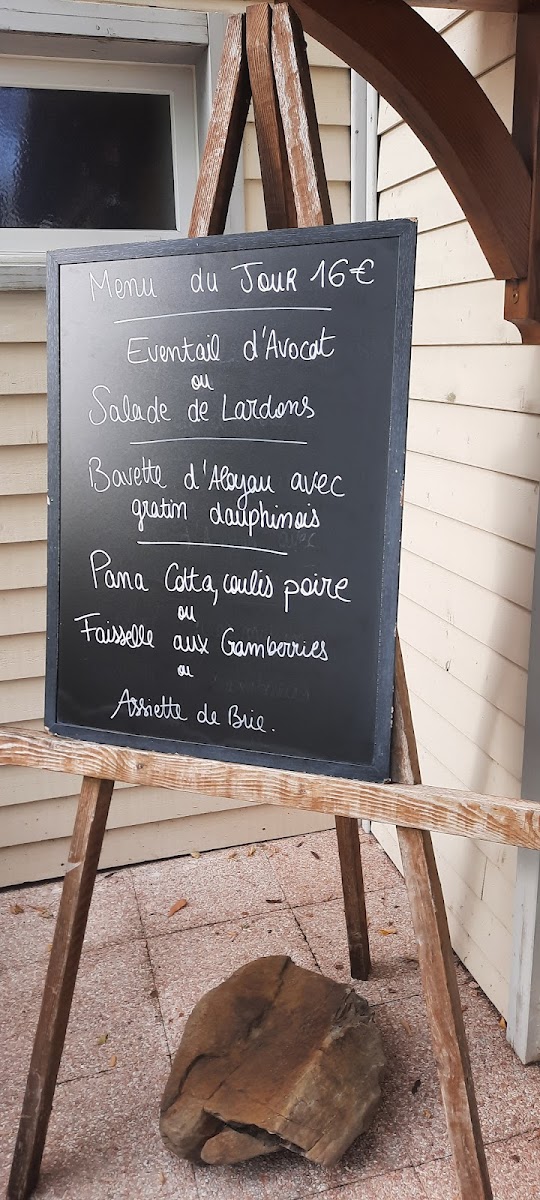 Menu du JOUR 16€
Eventail d'Avocat
ou
Salade de Lardons
Bavette d'Aloyau avec
gratin dauphinois
Pana Cotta, coulis poire
ou
Faisselle aux Gamberries
ou
Assiette de Brie.